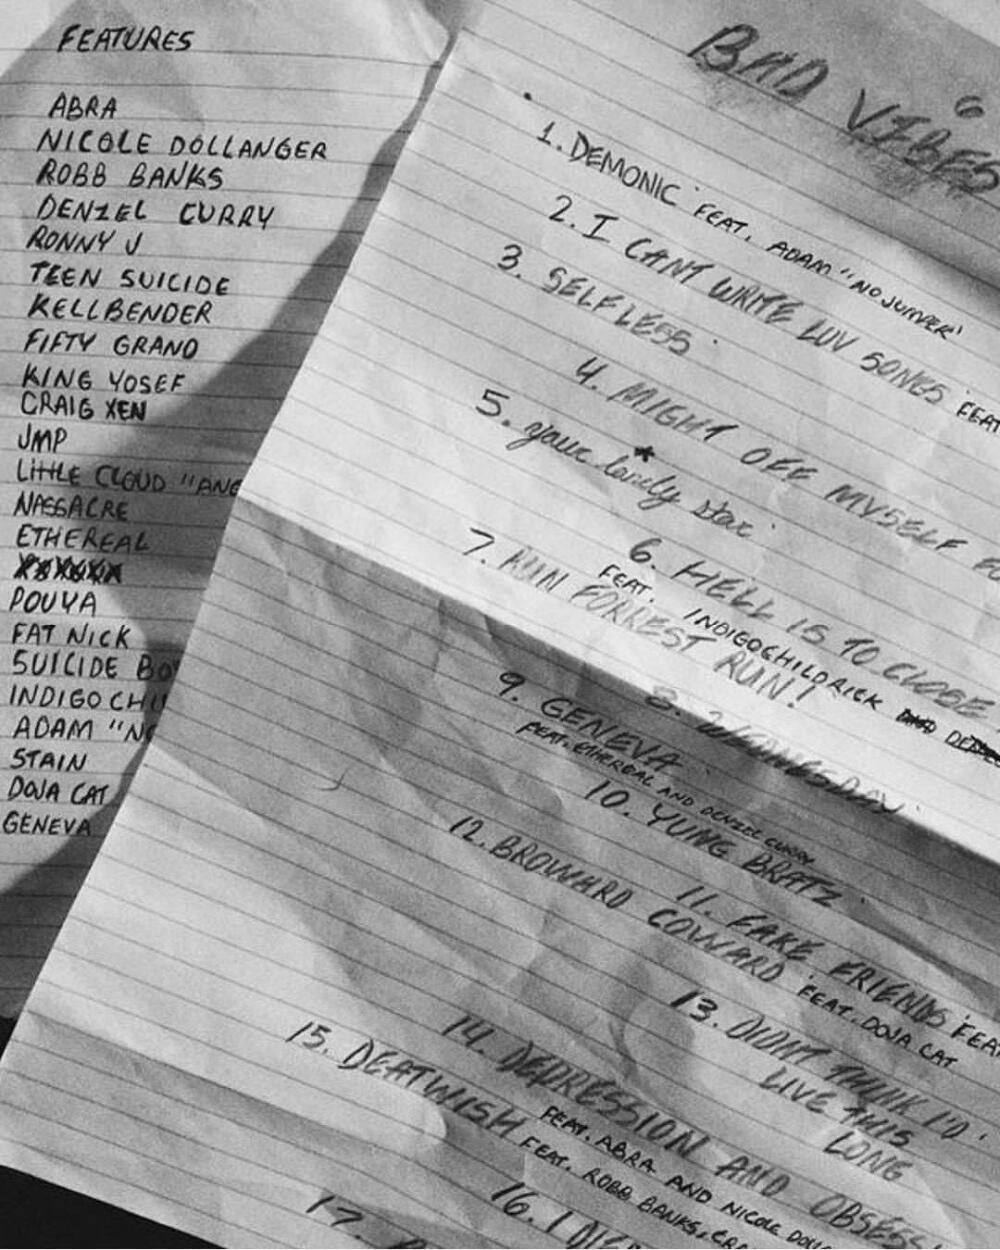 FEATURES
ABRA
NICOLE DOLLANGER
ROBB BANKS
DENZEL CURRY
RONNY J
TEEN SUICIDE
KELLBENDER
FIFTY GRAND
KING YOSEF
CRAIG XEN
JMP
LITTLE CLOUD "ANG
MASSACRE
ETHEREAL
POUYA
FAT NICK
SUICIDE BO
INDIGO CHI
ADAM "NO
STAIN
DOJA CAT
GENEVA
BAD VIBES
1. DEMONIC FEAT. ADAM "NO JUMPER'
2. I CANT WRITE LUV SONGS FEAT
3. SELFLESS
4. MIGHT OFF MYSELF
5. your lonely star
6. HELL IS TO CLOSE
FEAT. INDIGOCHILDRICK
7. RUN FORREST RUN!
8. WEDNESDAY
9. GENEVA
FEAT. ETHEREAL AND DENZEL CURRY
10. YUNG BRATZ
11. FAKE FRIENDS FEAT
12. BROWARD COWARD FEAT. DOJA CAT
13. DIDNT THINK I'D
LIVE THIS
LONG
14. DEPRESSION AND OBSESS
FEAT. ABRA AND NICOLE DOLL
15. DEATWISH FEAT. ROBB BANKS, CRA
16. I DIE
17.